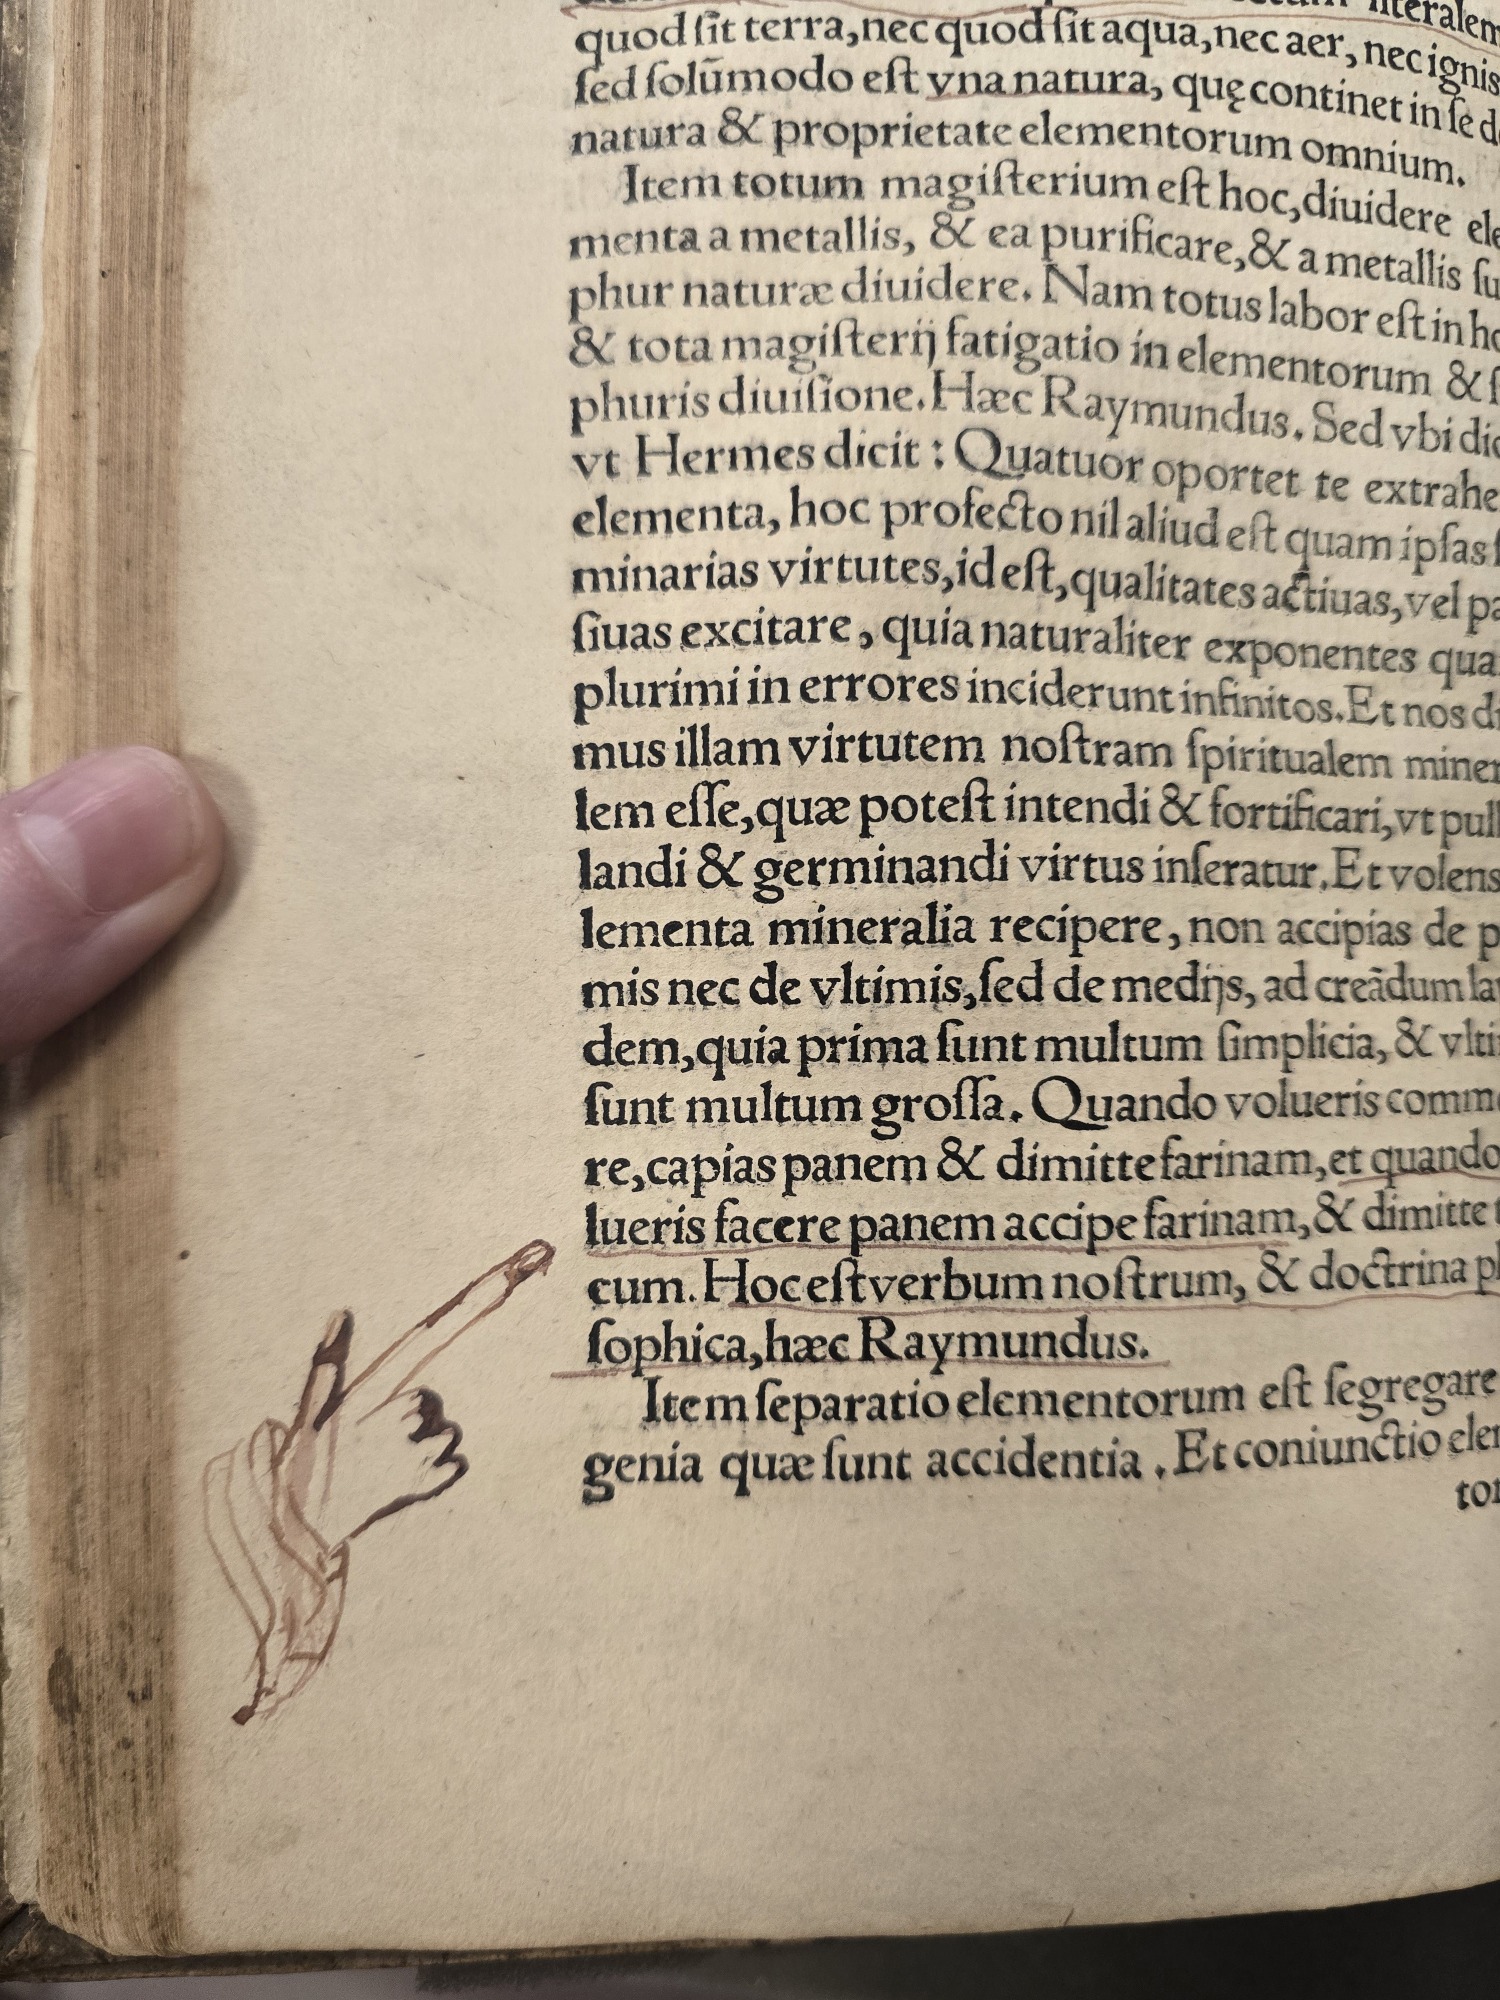 literalem
quod ſit terra, nec quod ſit aqua, nec aer, nec ignis
ſed ſolũmodo eſt vna natura, quę continet in ſe
natura & proprietate elementorum omnium.
Item totum magiſterium eſt hoc, diuidere ele
menta a metallis, & ea purificare, & a metallis ſu
phur naturæ diuidere. Nam totus labor eſt in
& tota magiſterij fatigatio in elementorum &
phuris diuiſione. Hæc Raymundus. Sed vbi
vt Hermes dicit : Quatuor oportet te extrahe
elementa, hoc profecto nil aliud eſt quam ipſas
minarias virtutes, id eſt, qualitates actiuas, vel pa
ſiuas excitare, quia naturaliter exponentes qua
plurimi in errores inciderunt infinitos. Et nos
mus illam virtutem noſtram ſpiritualem miner
lem eſſe, quæ poteſt intendi & fortificari, vt pull
landi & germinandi virtus inſeratur. Et volens
lementa mineralia recipere, non accipias de p
mis nec de vltimis, ſed de medijs, ad creãdum
dem, quia prima ſunt multum ſimplicia, & vlti
ſunt multum groſſa. Quando volueris comme
re, capias panem & dimitte farinam, et quando
lueris facere panem accipe farinam, & dimitte
cum. Hoc eſt verbum noſtrum, & doctrina
ſophica, hæc Raymundus.
Item ſeparatio elementorum eſt ſegregare
genia quæ ſunt accidentia . Et coniunctio ele
tor